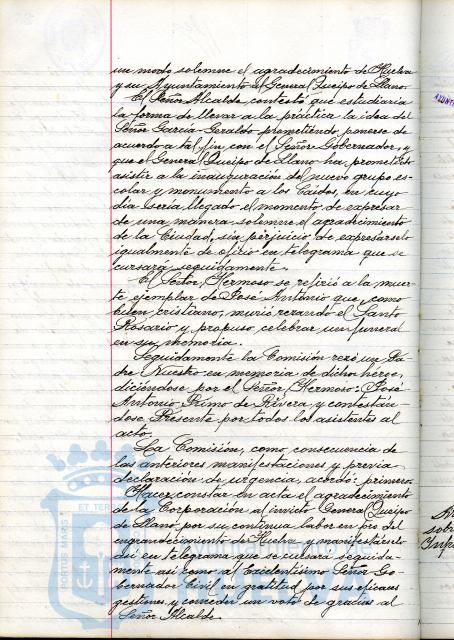 un modo solemne el agradecimiento de Huelva
y su Ayuntamiento al General Queipo de Llano.
El Señor Alcalde contestó que estudiaria
la forma de llevar a la práctica la idea del
Señor Garcia Geraldo prometiendo ponerse de
acuerdo a tal fin con el Señor Gobernador, y
que el General Queipo de Llano ha prometido
asistir a la inauguración del nuevo grupo es-
colar y monumento a los Caidos, en cuyo
dia seria llegado el momento de expresar
de una manera solemne el agradecimiento
de la Ciudad, sin perjuicio de expresarselo
igualmente de oficio en telegrama que se
cursará seguidamente.
El Señor Hermoso se refirió a la muer-
te ejemplar de José Antonio que, como
buen cristiano, murió rezando el Santo
Rosario y propuso celebrar un funeral
en su memoria.
Seguidamente la Comisión rezó un Pa-
dre Nuestro en memoria de dicho héroe,
diciéndose por el Señor Hermoso: José
Antonio Primo de Rivera, y contestán-
dose Presente por todos los asistentes al
acto.
La Comisión, como consecuencia de
las anteriores manifestaciones y previa
declaración de urgencia, acordó: primero.
Hacer constar en acta el agradecimiento
de la Corporación al invicto General Queipo
de Llano por su continua labor en pro del
engrandecimiento de Huelva y manifestárselo
asi en telegrama que se cursará seguida-
mente asi como al Excelentísimo Señor Go-
bernador Civil en gratitud por sus eficaces
gestiones, y conceder un voto de gracias al
Señor Alcalde.
PORTUS MARIS
ET TER